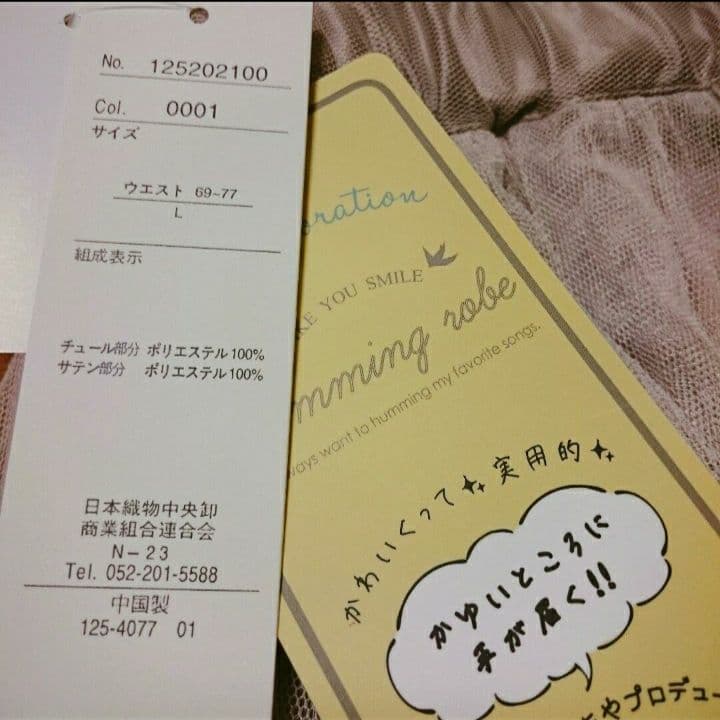 No. 125202100
Col. 0001
サイズ
ウエスト 69~77
L
組成表示
チュール部分 ポリエステル100%
サテン部分 ポリエステル100%
日本織物中央卸
商業組合連合会
N-23
Tel. 052-201-5588
中国製
125-4077 01
YOU SMILE
robe
want to humming my favorite songs.
かわいくって実用的
かゆいところに
手が届く!!